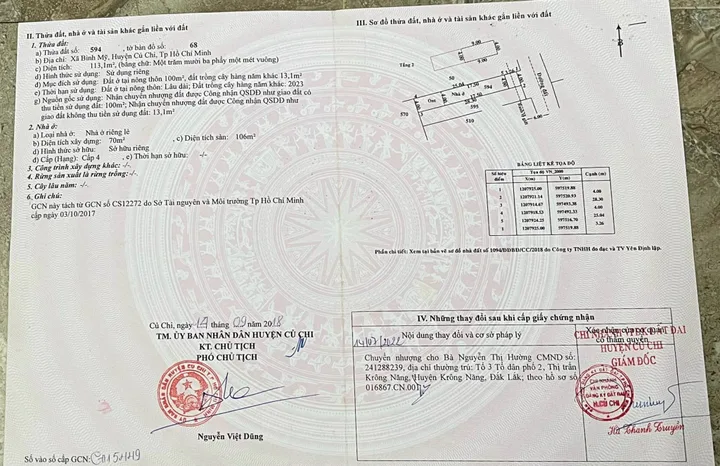 II. Thửa đất, nhà ở và tài sản khác gắn liền với đất
1. Thửa đất:
a) Thửa đất số: 594 , tờ bản đồ số: 68
b) Địa chỉ: Xã Bình Mỹ, Huyện Củ Chi, Tp Hồ Chí Minh
c) Diện tích: 113,1m², (bằng chữ: Một trăm mười ba phẩy một mét vuông)
d) Hình thức sử dụng: Sử dụng riêng
đ) Mục đích sử dụng: Đất ở tại nông thôn 100m²; đất trồng cây hàng năm khác 13,1m²
e) Thời hạn sử dụng: Đất ở tại nông thôn: Lâu dài; Đất trồng cây hàng năm khác: 2023
g) Nguồn gốc sử dụng: Nhận chuyển nhượng đất được Công nhận QSDĐ như giao đất có
thu tiền sử dụng đất: 100m²; Nhận chuyển nhượng đất được Công nhận QSDĐ như
giao đất không thu tiền sử dụng đất: 13,1m²
2. Nhà ở:
a) Loại nhà ở: Nhà ở riêng lẻ
b) Diện tích xây dựng: 70m² , c) Diện tích sàn: 106m²
d) Hình thức sở hữu: Sở hữu riêng
đ) Cấp (Hạng): Cấp 4 , e) Thời hạn sở hữu: -/-
3. Công trình xây dựng khác: -/-
4. Rừng sản xuất là rừng trồng: -/-
5. Cây lâu năm: -/-
6. Ghi chú:
GCN này tách từ GCN số CS12272 do Sở Tài nguyên và Môi trường Tp Hồ Chí Minh
cấp ngày 03/10/2017
Củ Chi, ngày 17 tháng 09 năm 2018
TM. ỦY BAN NHÂN DÂN HUYỆN CỦ CHI
KT. CHỦ TỊCH
PHÓ CHỦ TỊCH
Nguyễn Việt Dũng
Số vào sổ cấp GCN:
III. Sơ đồ thửa đất, nhà ở và tài sản khác gắn liền với đất
B
Tầng 2
9.00
4.00
50
25.04
17.50
594
3.26
Đường đất
Nhà ở
Oat
17.50
28.30
595
570
510
6.00
BẢNG LIỆT KÊ TỌA ĐỘ
Số hiệu điểm
Tọa độ VN_2000
Cạnh (m)
X(m)
Y(m)
1 1207925.00 597519.88
4.00
2 1207921.14 597520.93
28.30
3 1207914.67 597493.38
4.00
4 1207918.53 597492.33
25.04
5 1207924.25 597516.70
3.26
1 1207925.00 597519.88
Phần chi tiết: Xem tại bản vẽ sơ đồ nhà đất số 1094/ĐĐBĐ/CC/2018 do Công ty TNHH đo đạc và TV Yên Định lập.
IV. Những thay đổi sau khi cấp giấy chứng nhận
Nội dung thay đổi và cơ sở pháp lý
Xác nhận của cơ quan
có thẩm quyền
14/07/2022
Chuyển nhượng cho Bà Nguyễn Thị Hường CMND số:
241288239, địa chỉ thường trú: Tổ 3 Tổ dân phố 2, Thị trấn
Krông Năng, Huyện Krông Năng, Đăk Lăk; theo hồ sơ số
016867.CN.001
CHI NHÁNH VPĐK ĐẤT ĐAI
HUYỆN CỦ CHI
GIÁM ĐỐC
CHI NHÁNH
VĂN PHÒNG
ĐĂNG KÝ ĐẤT ĐAI
H.CỦ CHI
Hà Thanh Truyền